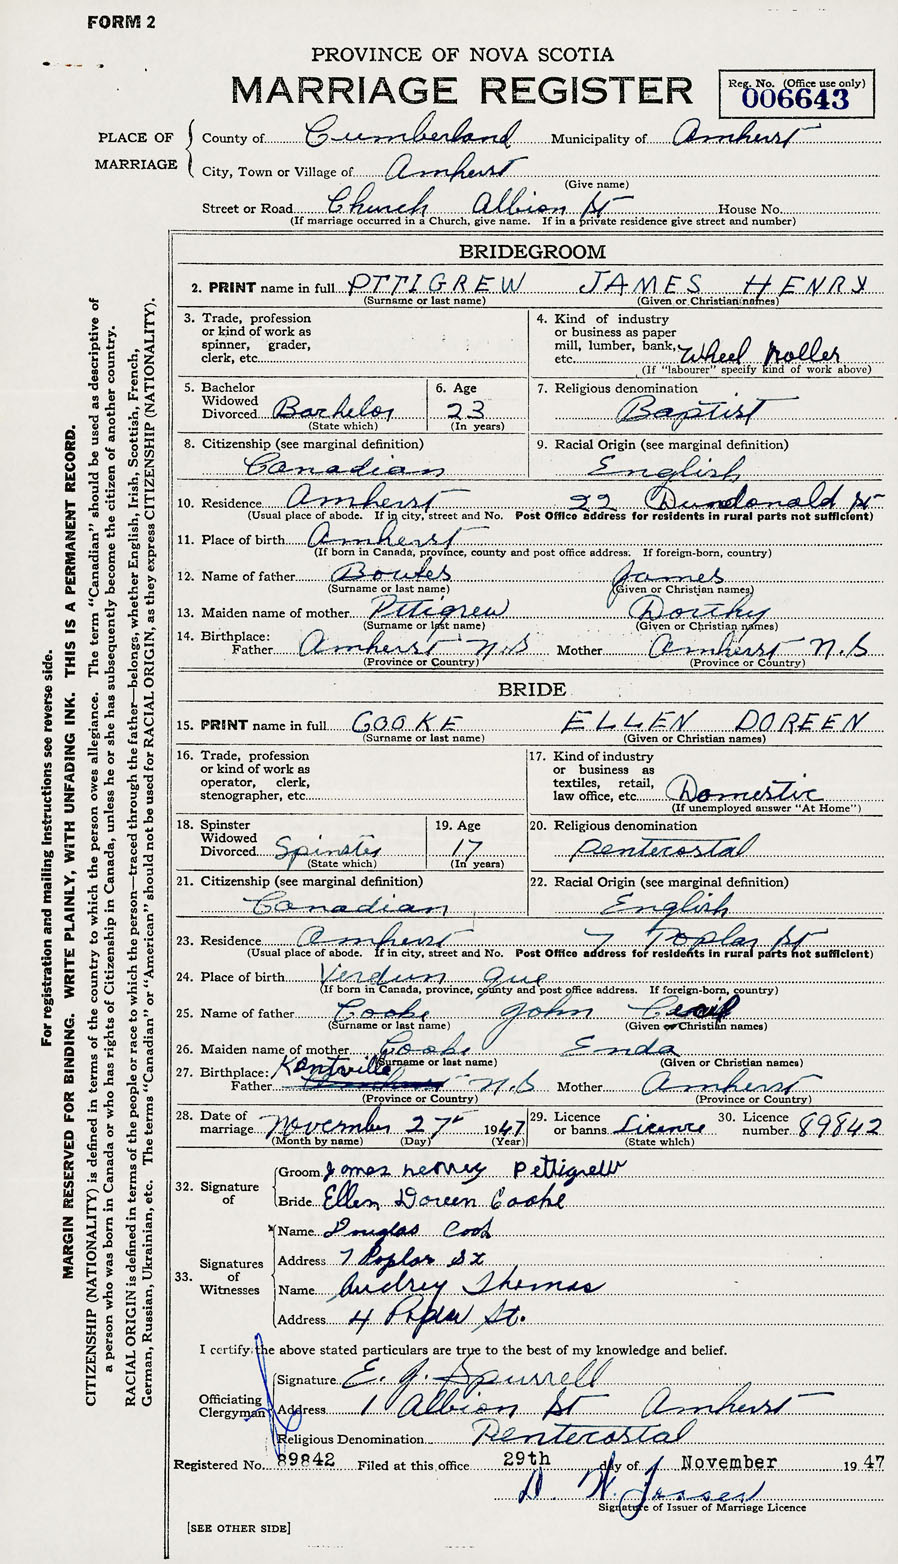 FORM 2
PROVINCE OF NOVA SCOTIA
MARRIAGE REGISTER
Reg. No. (Office use only)
006643
PLACE OF MARRIAGE
County of Cumberland Municipality of Amherst
City, Town or Village of Amherst
(Give name)
Street or Road Church Albion St House No.
(If marriage occurred in a Church, give name. If in a private residence give street and number)
BRIDEGROOM
2. PRINT name in full PTTIGREW JAMES HENRY
(Surname or last name) (Given or Christian names)
3. Trade, profession or kind of work as spinner, grader, clerk, etc.
4. Kind of industry or business as paper mill, lumber, bank, etc. Wheel Roller
(If "labourer" specify kind of work above)
5. Bachelor Widowed Divorced Bachelor
(State which)
6. Age 23
(In years)
7. Religious denomination Baptist
8. Citizenship (see marginal definition) Canadian
9. Racial Origin (see marginal definition) English
10. Residence Amherst 22 Dundonald St
(Usual place of abode. If in city, street and No. Post Office address for residents in rural parts not sufficient)
11. Place of birth Amherst
(If born in Canada, province, county and post office address. If foreign-born, country)
12. Name of father James
(Surname or last name) (Given or Christian names)
13. Maiden name of mother Pttigrew Dorthy
(Surname or last name) (Given or Christian names)
14. Birthplace: Father Amherst N.S Mother Amherst N.S
(Province or Country) (Province or Country)
BRIDE
15. PRINT name in full COOKE ELLEN DOREEN
(Surname or last name) (Given or Christian names)
16. Trade, profession or kind of work as operator, clerk, stenographer, etc.
17. Kind of industry or business as textiles, retail, law office, etc. Domestic
(If unemployed answer "At Home")
18. Spinster Widowed Divorced Spinster
(State which)
19. Age 17
(In years)
20. Religious denomination Pentecostal
21. Citizenship (see marginal definition) Canadian
22. Racial Origin (see marginal definition) English
23. Residence Amherst 7 Poplar St
(Usual place of abode. If in city, street and No. Post Office address for residents in rural parts not sufficient)
24. Place of birth Verdun Que
(If born in Canada, province, county and post office address. If foreign-born, country)
25. Name of father Cooke John Cecil
(Surname or last name) (Given or Christian names)
26. Maiden name of mother Cooke Enda
(Surname or last name) (Given or Christian names)
27. Birthplace: Father Kentville N.S Mother Amherst
(Province or Country) (Province or Country)
28. Date of marriage November 27th 1947
(Month by name) (Day) (Year)
29. Licence or banns Licence
(State which)
30. Licence number 89842
32. Signature of
Groom James Henry Pettigrew
Bride Ellen Doreen Cooke
33. Signatures of Witnesses
Name Douglas Cook
Address 7 Poplar St
Name Audrey Thomas
Address 4 Poplar St.
I certify the above stated particulars are true to the best of my knowledge and belief.
Officiating Clergyman
Signature E. J. Spurrell
Address 1 Albion St Amherst
Religious Denomination Pentecostal
Registered No. 89842 Filed at this office 29th day of November 1947
D. W.
Signature of Issuer of Marriage Licence
[SEE OTHER SIDE]
For registration and mailing instructions see reverse side.
MARGIN RESERVED FOR BINDING. WRITE PLAINLY, WITH UNFADING INK. THIS IS A PERMANENT RECORD.
CITIZENSHIP (NATIONALITY) is defined in terms of the country to which the person owes allegiance. The term "Canadian" should be used as descriptive of
a person who was born in Canada or who has rights of Citizenship in Canada, unless he or she has subsequently become the citizen of another country.
RACIAL ORIGIN is defined in terms of the people or race to which the person—traced through the father—belongs, whether English, Irish, Scottish, French,
German, Russian, Ukrainian, etc. The terms "Canadian" or "American" should not be used for RACIAL ORIGIN, as they express CITIZENSHIP (NATIONALITY).